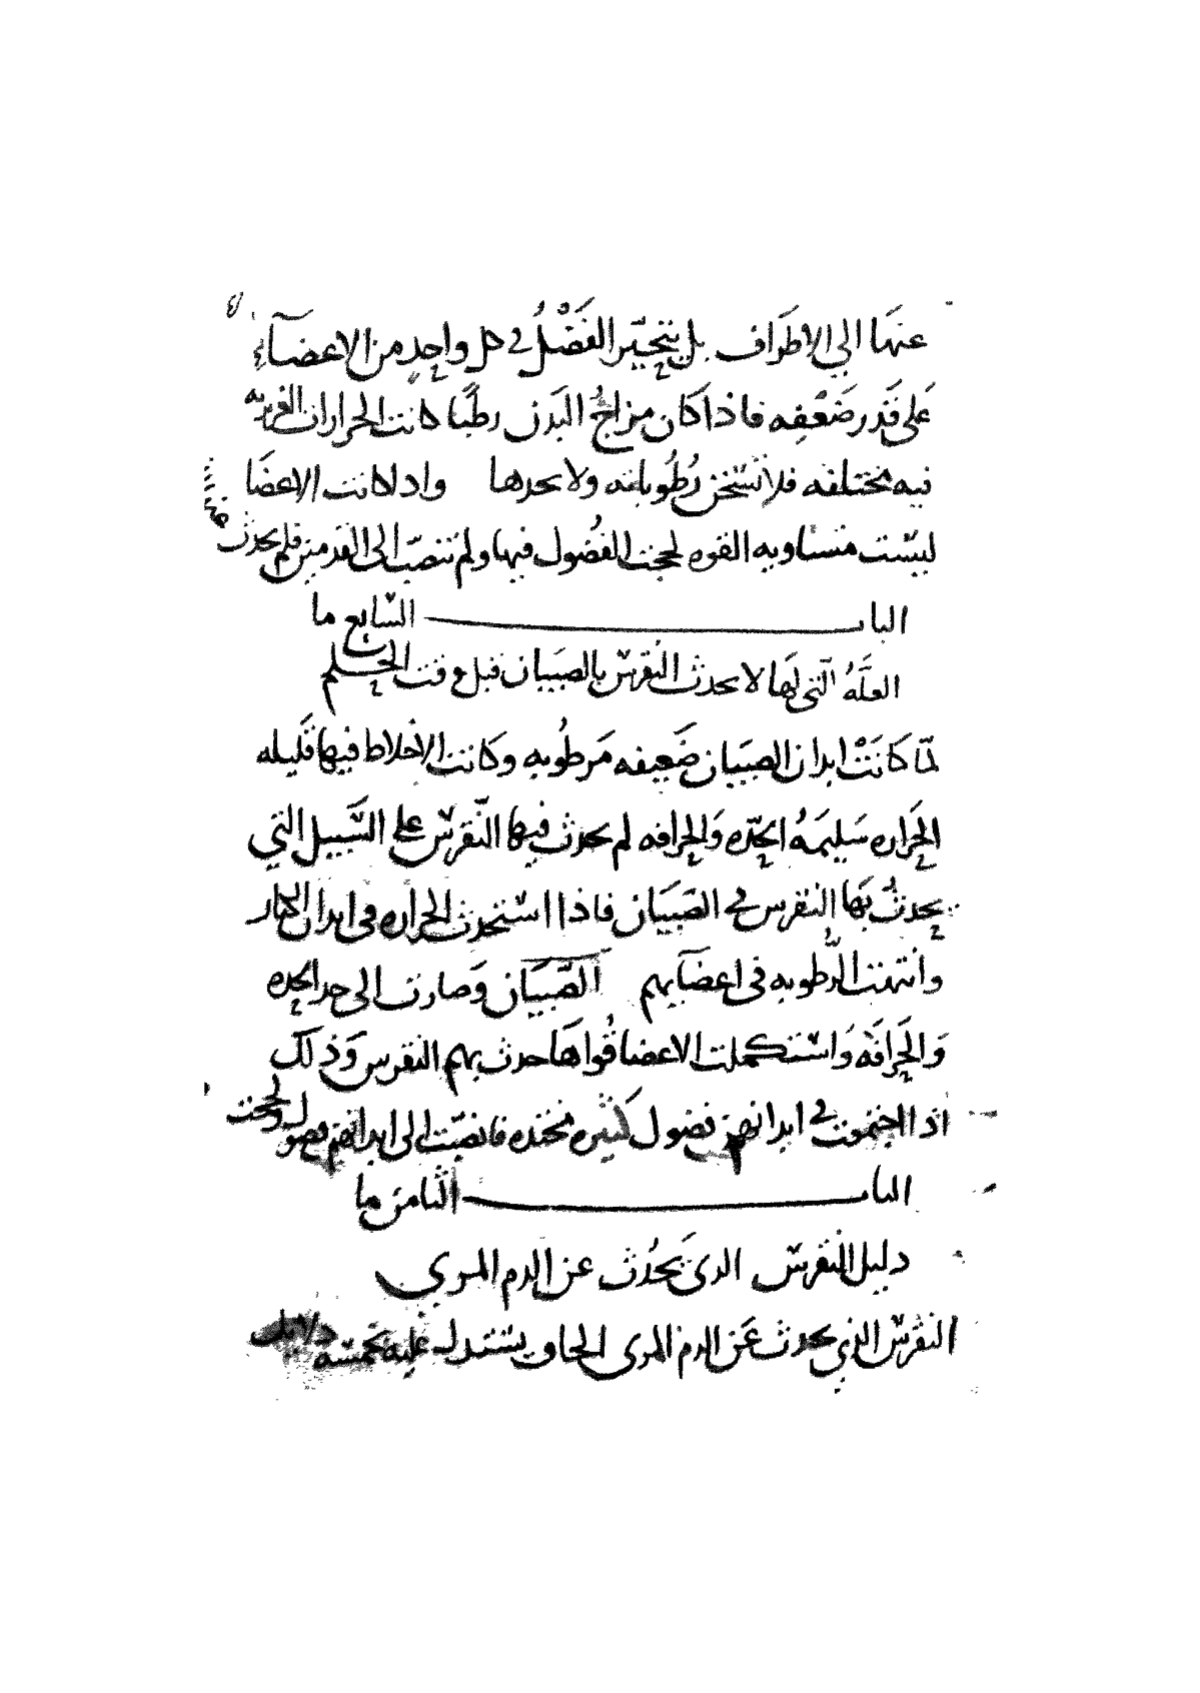 عنها الي الاطراف بل يتحيّر الفَضْلُ في كل واحِدٍ من الاعضآء
عَلى قَدر ضَعْفِه فاذا كَان مزاجُ البَدن رطبًا كانت الحرارات الغريبه
فيه مختلفه فلا تسْخن رُطُوباته ولا يحدها واذ كانت الاعضَا
ليسَت متساويه القوه لحجت الفُضول فيها ولم تنصبّ الى القدمين فلم يحدث
البا ب السَّابع ما
العلَّهُ التي لَها لا يحدث النقرسْ بالصبيان قبل وقت الحلم
لمّا كَانَتْ ابدان الصبَيان ضَعِيفه مَرطُوبه وكَانت الاخلاط فيها قليله
الحَراره سَليمَهُ الحِدّه وَالحِرافه لم يحدث فيها النّقرسْ على السَّبيل التي
يحدثُ بَها النقرس في الصبيَان فاذا استحدث الحراره في ابدان الكبار
وانتهت الرُّطوبه في اعضَآيهم الصّبيَان وَصارت الى حد الحده
وَالحَرافَه وَاستكملت الاعضا قُواهَا حدث بهم النقرس وَذلك
اذا اجتمعت في ابدانهم فضول كَثيره محتده فانصبّت الى ابدانهم فصول ولحجت
البا ب الثامن ما
دليل النقرسْ الدى يَحدُث عن الدم المري
النقرسْ الذي يحدث عَن الدم المرى الحاد يسْتدل عليه بخمسَه دلايل